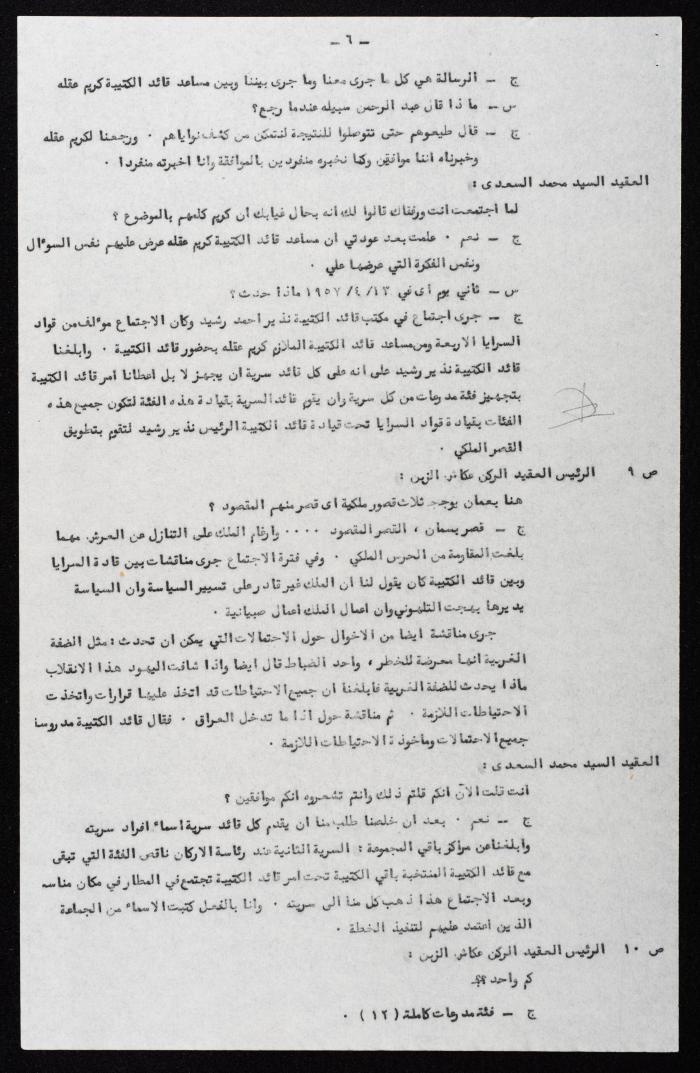 ـ ٦ ـ
ج ـ الرسالة هي كل ما جرى معنا وما جرى بيننا وبين مساعد قائد الكتيبة كريم عقله
س ـ ماذا قال عبد الرحمن سبيله عندما رجع؟
ج ـ قال طيعوهم حتى تتوصلوا للنتيجة لنتمكن من كشف نواياهم ٠ ورجعنا لكريم عقله
وخبرناه اننا موافقين وكنا نخبره منفردين بالموافقة وانا اخبرته منفردا ٠
العقيد السيد محمد السعدى :
لما اجتمعت انت ورفقاك قالوا لك انه بحال غيابك أن كريم كلمهم بالموضوع ؟
ج ـ نعم ٠ علمت بعد عودتي ان مساعد قائد الكتيبة كريم عقله عرض عليهم نفس السوءال
ونفس الفكرة التي عرضها علي ٠
س ـ ثاني يوم أى في ١٣/ ٤/ ١٩٥٧ ماذا حدث؟
ج ـ جرى اجتماع في مكتب قائد الكتيبة نذير احمد رشيد وكان الاجتماع موءلف من قواد
السرايا الاربعة ومن مساعد قائد الكتيبة الملازم كريم عقله بحضور قائد الكتيبة ٠ وابلغنا
قائد الكتيبة نذير رشيد على انه على كل قائد سرية ان يجهز لا بل اعطانا امر قائد الكتيبة
بتجهيز فئة مدرعات من كل سرية وان يقوم قائد السرية بقيادة هذه الفئة لتكون جميع هذه
الفئات بقيادة قواد السرايا تحت قيادة قائد الكتيبة الرئيس نذير رشيد لتقوم بتطويق
القصر الملكي ٠
ص ٩ الرئيس العقيد الركن عكاش الزبن :
هنا بعمان يوجد ثلاث قصور ملكية اى قصر منهم المقصود ؟
ج ـ قصر بسمان ، القصر المقصود ٠٠٠٠ وارغام الملك على التنازل عن العرش مهما
بلغت المقاومة من الحرس الملكي ٠ وفي فترة الاجتماع جرى مناقشات بين قادة السرايا
وبين قائد الكتيبة كان يقول لنا ان الملك غير قادر على تسيير السياسة وان السياسة
يديرها بهجت التلهوني وان اعمال الملك اعمال صبيانية ٠
جرى مناقشة ايضا من الاخوان حول الاحتمالات التي يمكن ان تحدث : مثل الضفة
الغربية انها معرضة للخطر ، واحد الضباط قال ايضا واذا شافت اليهود هذا الانقلاب
ماذا يحدث للضفة الغربية فابلغنا ان جميع الاحتياطات قد اتخذ عليها قرارات واتخذت
الاحتياطات اللازمة ٠ ثم مناقشة حول اذا ما تدخل العراق ٠ فقال قائد الكتيبة مدروسة
جميع الاحتمالات ومأخوذة الاحتياطات اللازمة ٠
العقيد السيد محمد السعدى :
انت قلت الآن انكم قلتم ذلك وانتم تشعروه انكم موافقين ؟
ج ـ نعم ٠ بعد ان خلصنا طلب منا ان يقدم كل قائد سرية اسماء افراد سريته
وابلغنا عن مراكز باقي المجموعة : السرية الثانية عند رئاسة الاركان ناقص الفئة التي تبقى
مع قائد الكتيبة المنتخبة باقي الكتيبة تحت امر قائد الكتيبة تجتمع في المطار في مكان مناسب
وبعد الاجتماع هذا ذهب كل منا الى سريته ٠ وانا بالفعل كتبت الاسماء من الجماعة
الذين اعتمد عليهم لتنفيذ الخطة ٠
ص ١٠ الرئيس العقيد الركن عكاش الزبن :
كم واحد ؟؟
ج ـ فئة مدرعات كاملة (١٢) ٠